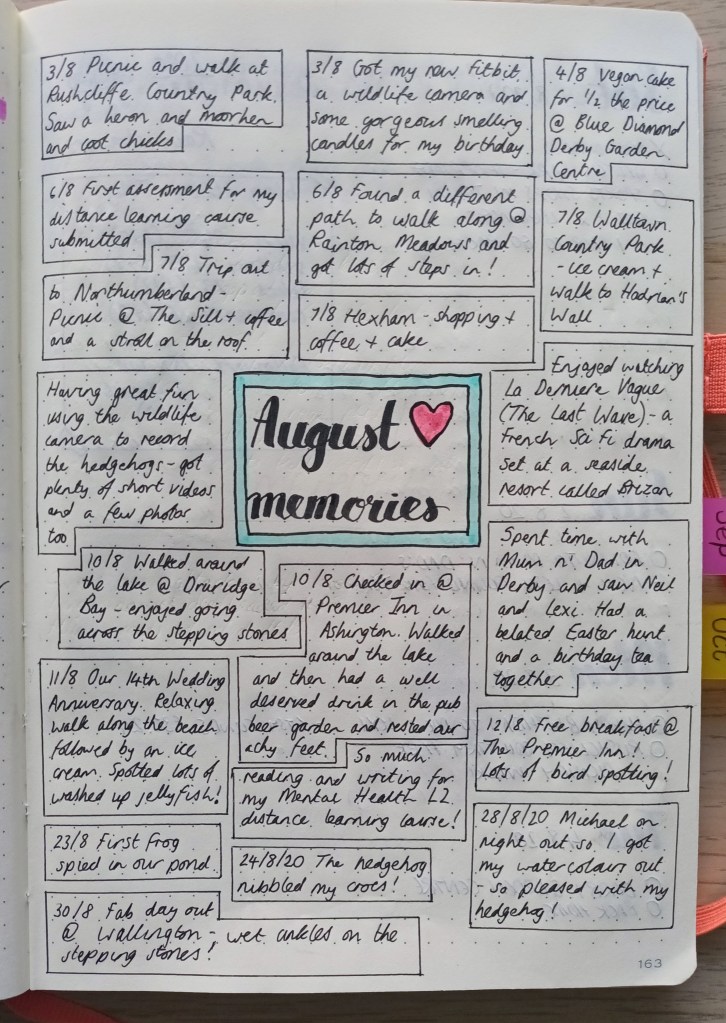 3/8 Picnic and walk at
Rushcliffe Country Park.
Saw a heron and moorhen
and coot chicks
3/8 Got my new fitbit
a wildlife camera and
some gorgeous smelling
candles for my birthday
4/8 Vegan cake
for 1/2 the price
@ Blue Diamond
Derby Garden
Centre
6/8 First assessment for my
distance learning course
submitted
6/8 Found a different
path to walk along @
Rainton Meadows and
got lots of steps in!
7/8 Walltown
Country Park
- ice cream +
walk to Hadrian's
Wall
7/8 Trip out
to Northumberland -
Picnic @ The Sill + coffee
and a stroll on the roof
7/8 Hexham - shopping +
coffee + cake
Having great fun
using the wildlife
camera to record
the hedgehogs - got
plenty of short videos
and a few photos
too
August
memories
Enjoyed watching
La Derniere Vague
(The Last Wave) - a
French Sci fi drama
set at a seaside
resort called Brizan
10/8 Walked around
the lake @ Druridge
Bay - enjoyed going
across the stepping stones
10/8 Checked in @
Premier Inn in
Ashington. Walked
around the lake
and then had a well
deserved drink in the pub
beer garden and rested our
achy feet.
Spent time with
Mum n' Dad in
Derby and saw Neil
and Lexi. Had a
belated Easter hunt
and a birthday tea
together
11/8 Our 14th Wedding
Anniversary. Relaxing
walk along the beach
followed by an ice
cream. Spotted lots of
washed up jellyfish!
So much
reading and writing for
my Mental Health L2
distance learning course!
12/8 Free breakfast @
The Premier Inn!
Lots of bird spotting!
23/8 First frog
spied in our pond
24/8/20 The hedgehog
nibbled my crocs!
28/8/20 Michael on
night out so I got
my watercolours out
- so pleased with my
hedgehog!
30/8 Fab day out
@ Wallington - wet ankles on the
stepping stones!
163
Sep
Oct